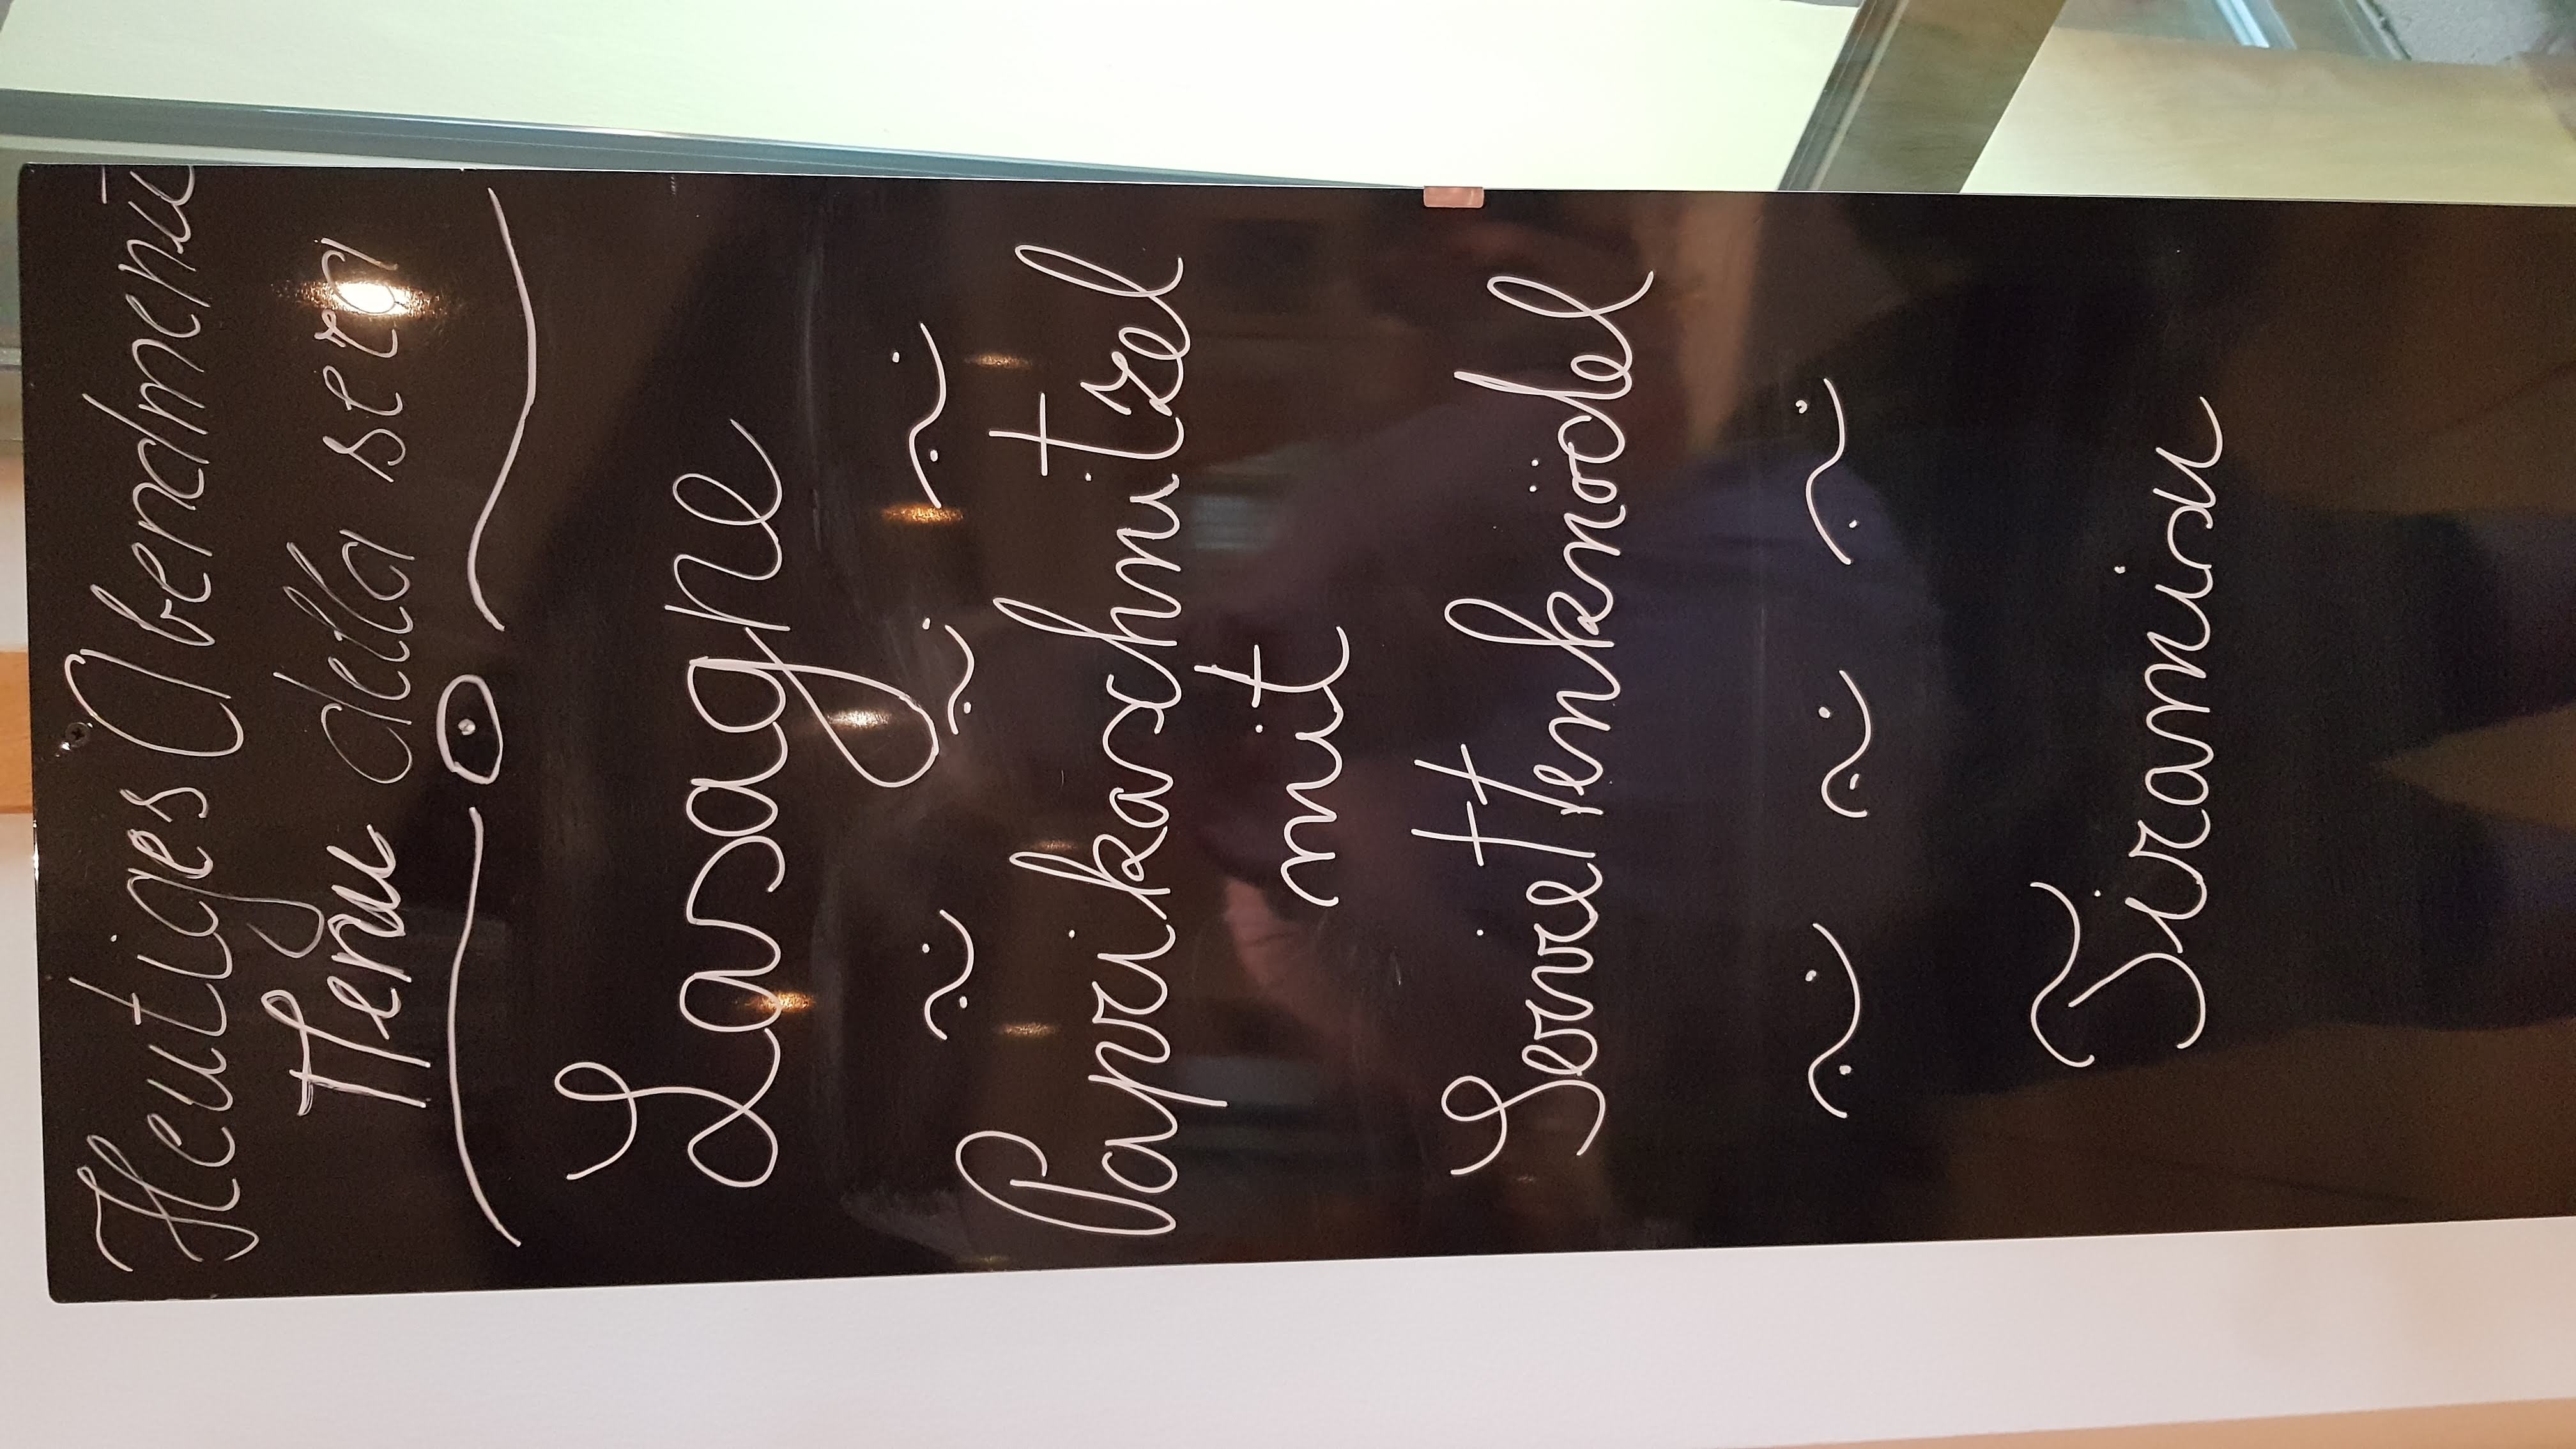 Heutiges Abendmenü
Menu della sera
Lasagne
Paprikaschnitzel
mit
Serviettenknödel
Tiramisu